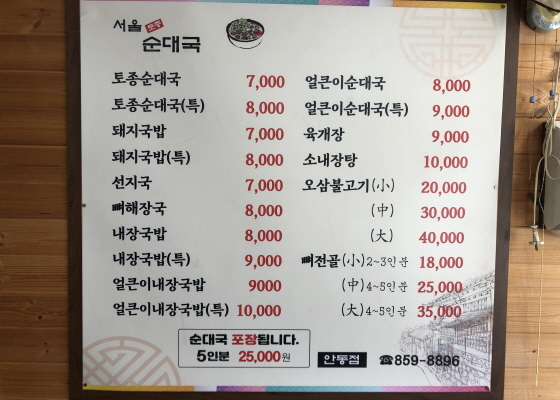 서울 토종
순대국
토종순대국 7,000
토종순대국(특) 8,000
돼지국밥 7,000
돼지국밥(특) 8,000
선지국 7,000
뼈해장국 8,000
내장국밥 8,000
내장국밥(특) 9,000
얼큰이내장국밥 9000
얼큰이내장국밥(특) 10,000
얼큰이순대국 8,000
얼큰이순대국(특) 9,000
육개장 9,000
소내장탕 10,000
오삼불고기(小) 20,000
(中) 30,000
(大) 40,000
뼈전골(小)2~3인분 18,000
(中)4~5인분 25,000
(大)4~5인분 35,000
순대국 포장됩니다.
5인분 25,000원
안동점 ☎859-8896